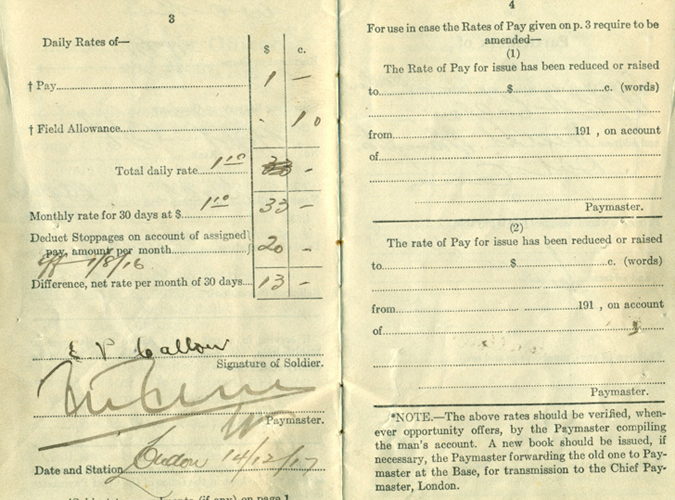 3
Daily Rates of—
$ c.
† Pay 1 —
† Field Allowance . 10
Total daily rate 1 10 —
Monthly rate for 30 days at $ 1 10 33 —
Deduct Stoppages on account of assigned
pay, amount per month 20 —
1/8/16
Difference, net rate per month of 30 days 13 —
E P Callow
Signature of Soldier.
Paymaster.
Date and Station London 14/12/17
4
For use in case the Rates of Pay given on p. 3 require to be
amended—
(1)
The Rate of Pay for issue has been reduced or raised
to $ c. (words)
from 191 , on account
of
Paymaster.
(2)
The rate of Pay for issue has been reduced or raised
to $ c. (words)
from 191 , on account
of
Paymaster.
*NOTE.—The above rates should be verified, when-
ever opportunity offers, by the Paymaster compiling
the man's account. A new book should be issued, if
necessary, the Paymaster forwarding the old one to Pay-
master at the Base, for transmission to the Chief Pay-
master, London.
(if any) on page 1